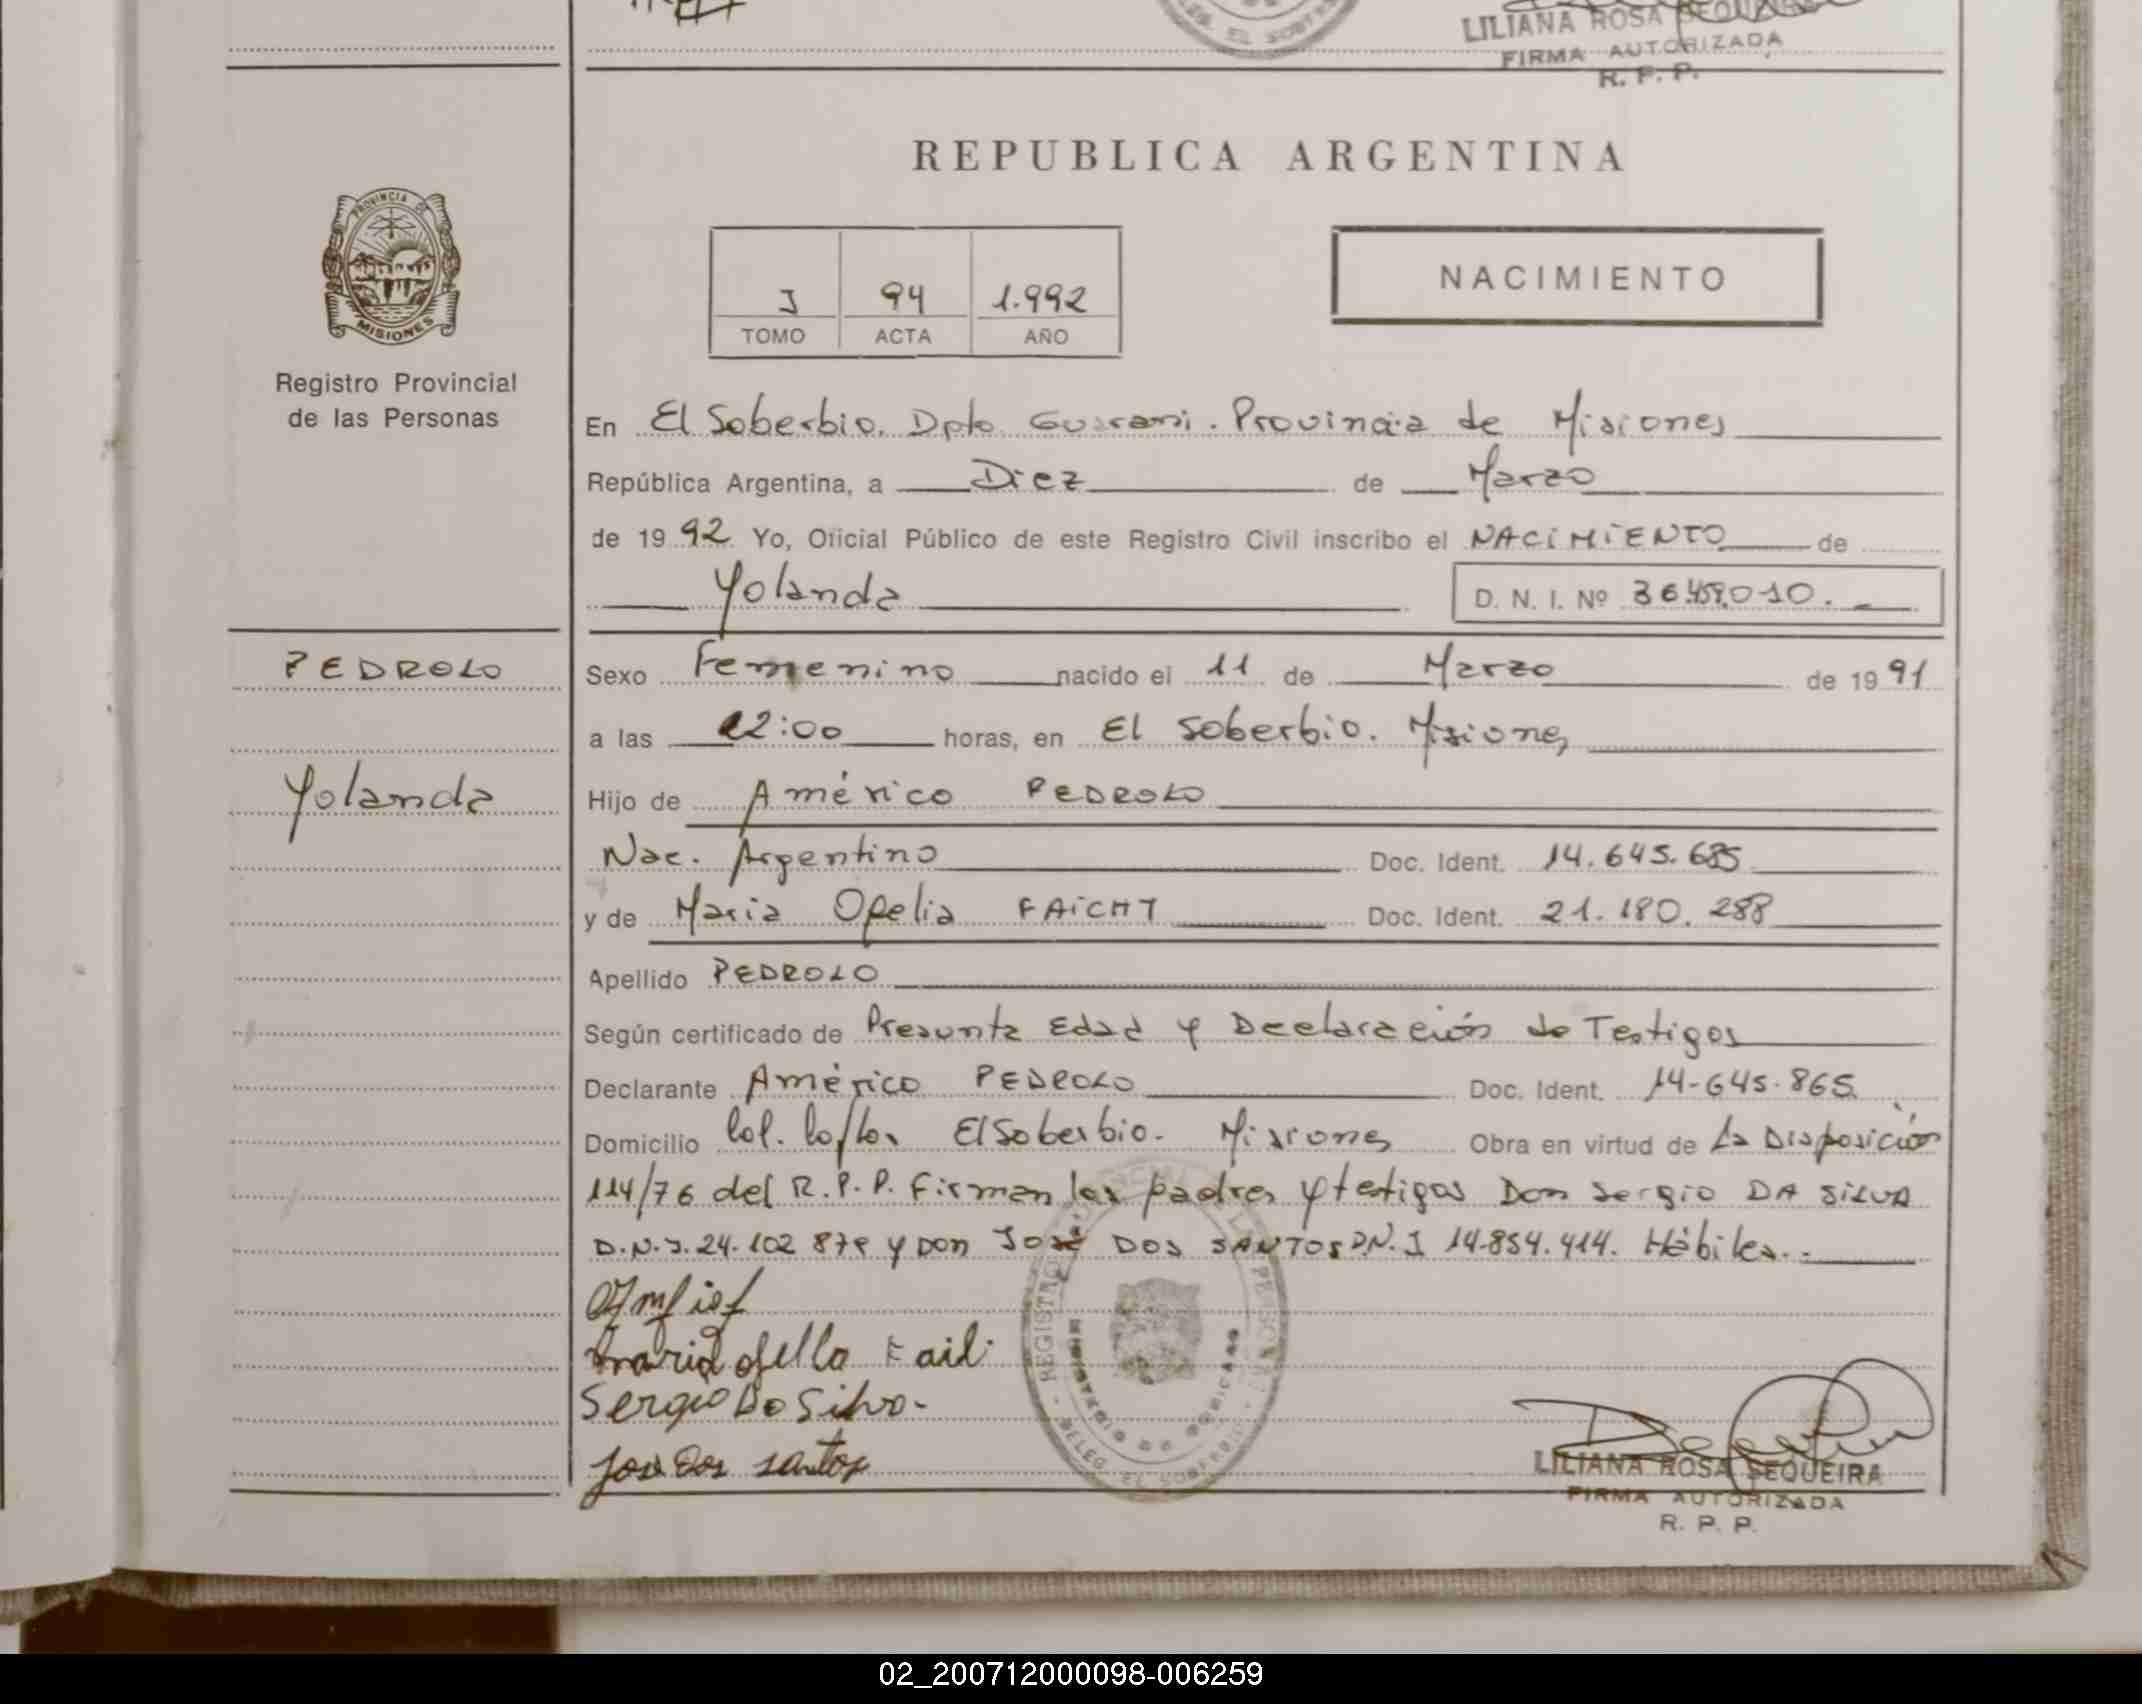 LILIANA ROSA SEQUEIRA
FIRMA AUTORIZADA
R. P. P.
REPUBLICA ARGENTINA
PROVINCIA DE
MISIONES
Registro Provincial
de las Personas
I 94 1.992
TOMO ACTA AÑO
NACIMIENTO
En El Soberbio. Dpto Guarani. Provincia de Misiones
República Argentina, a Diez de Marzo
de 19 92 Yo, Oficial Público de este Registro Civil inscribo el NACIMIENTO de
Yolanda D. N. I. Nº 36.459.010.
PEDROLO
Yolanda
Sexo Femenino nacido el 11 de Marzo de 19 91
a las 22:00 horas, en El Soberbio. Misiones
Hijo de Américo PEDROLO
Nac. Argentino Doc. Ident. 14.645.685
y de Maria Ofelia FAICHT Doc. Ident. 21.180.288
Apellido PEDROLO
Según certificado de Presunta Edad y Declaración de Testigos
Declarante Américo PEDROLO Doc. Ident. 14-645.865
Domicilio Col. El Soberbio. Misiones Obra en virtud de La Disposición
114/76 del R.P.P. Firman los padres y testigos Don Sergio DA SILVA
D.N.I. 24.102 879 y Don José DOS SANTOS D.N.I 14.854.414. Hábiles..
Maria ofelia
Sergio Da Silva
Jose Dos santos
LILIANA ROSA SEQUEIRA
FIRMA AUTORIZADA
R. P. P.
02_200712000098-006259